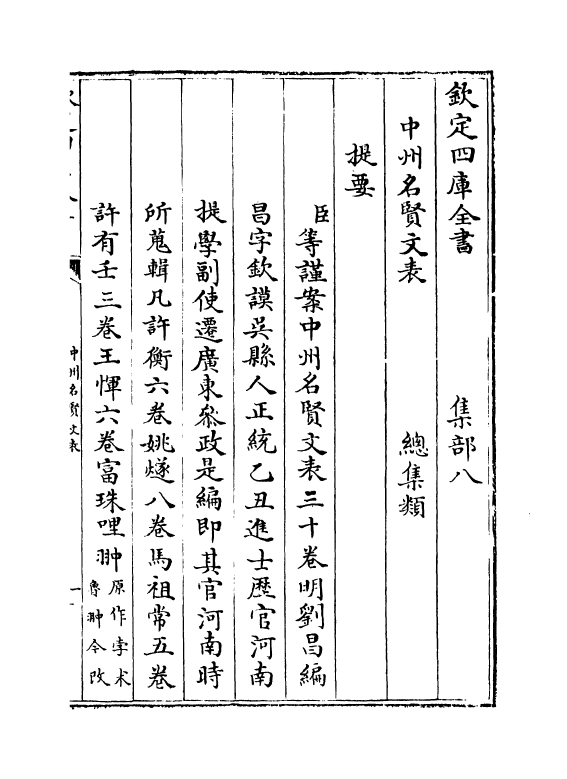 欽定四庫全書 集部八
中州名賢文表 總集類
提要
臣等謹案中州名賢文表三十卷明劉昌編
昌字欽謨吳縣人正統乙丑進士歷官河南
提學副使遷廣東叅政是編即其官河南時
所蒐輯凡許衡六卷姚燧八卷馬祖常五卷
許有壬三卷王惲六卷富珠哩翀原作孛术
魯翀今改
中州名賢文表
一